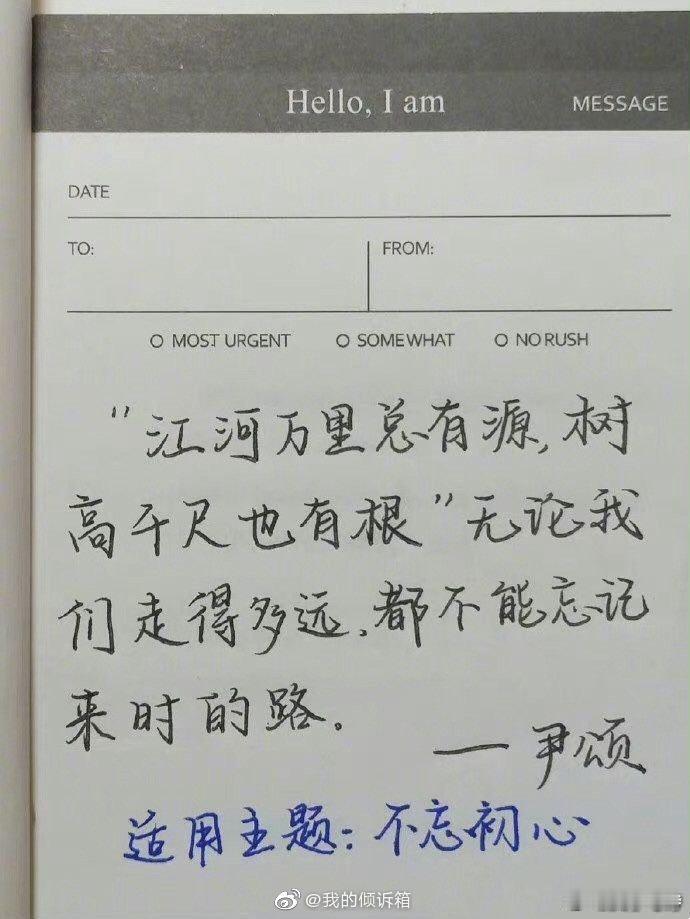 Hello, I am MESSAGE
DATE
TO: FROM:
O MOST URGENT O SOMEWHAT O NO RUSH
"江河万里总有源,树
高千尺也有根"无论我
们走得多远,都不能忘记
来时的路.
——尹颂
适用主题:不忘初心
@我的倾诉箱